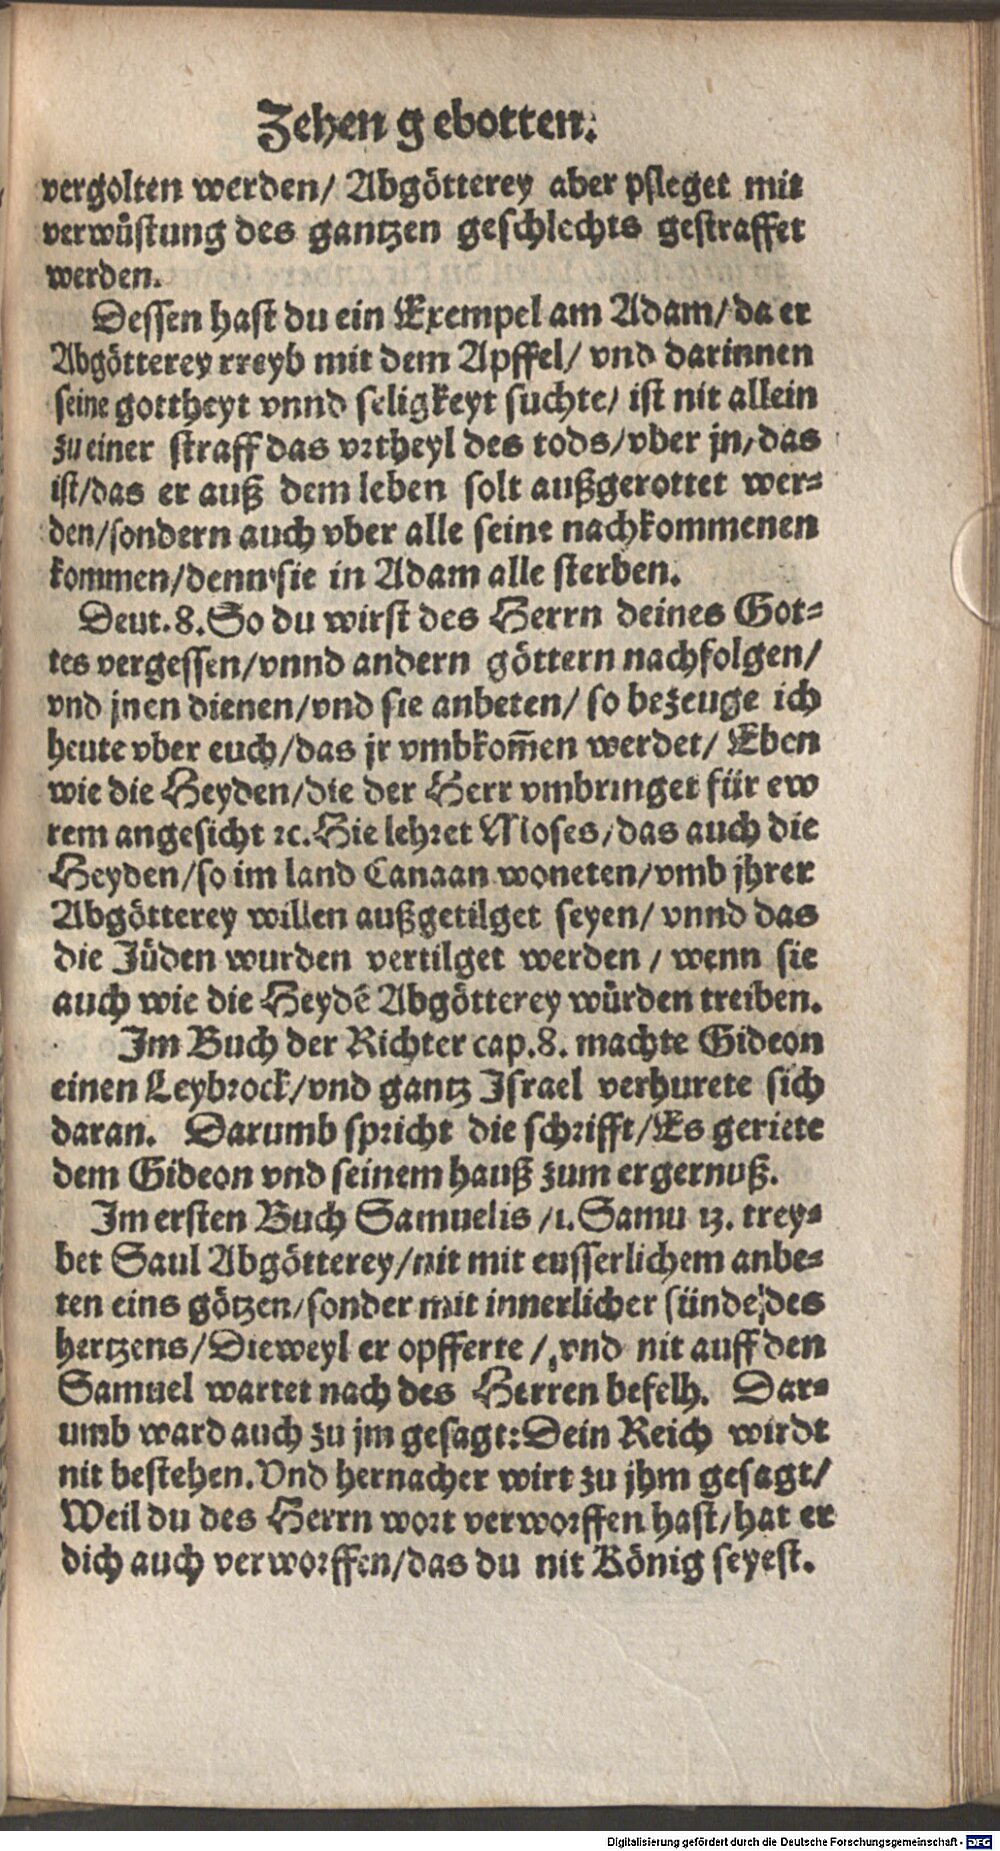 Zehen gebotten.
vergolten werden/ Abgötterey aber pfleget mit
verwüstung des gantzen geschlechts gestraffet
werden.
Dessen hast du ein Exempel am Adam/ da er
Abgötterey rreyb mit dem Apffel/ vnd darinnen
seine gottheyt vnnd seligkeyt suchte/ ist nit allein
zu einer straff das vrtheyl des tods/ vber jn/ das
ist/ das er auß dem leben solt außgerottet wer=
den/ sondern auch vber alle seine nachkommenen
kommen/ denn sie in Adam alle sterben.
Deut. 8. So du wirst des Herrn deines Got=
tes vergessen/ vnnd andern göttern nachfolgen/
vnd jnen dienen/ vnd sie anbeten/ so bezeuge ich
heute vber euch/ das jr vmbkom̃en werdet/ Eben
wie die Heyden/ die der Herr vmbringet für ew
rem angesicht ꝛc. Hie lehret Moses/ das auch die
Heyden/ so im land Canaan woneten/ vmb jhrer
Abgötterey willen außgetilget seyen/ vnnd das
die Jüden wurden vertilget werden/ wenn sie
auch wie die Heydẽ Abgötterey würden treiben.
Im Buch der Richter cap. 8. machte Gideon
einen Leybrock/ vnd gantz Israel verhurete sich
daran. Darumb spricht die schrifft/ Es geriete
dem Gideon vnd seinem hauß zum ergernuß.
Im ersten Buch Samuelis/ 1. Samu 13. trey=
bet Saul Abgötterey/ nit mit eusserlichem anbe=
ten eins götzen/ sonder mit innerlicher sünde des
hertzens/ Dieweyl er opfferte/ vnd nit auff den
Samuel wartet nach des Herren befelh. Dar=
umb ward auch zu jm gesagt: Dein Reich wirdt
nit bestehen. Vnd hernacher wirt zu jhm gesagt/
Weil du des Herrn wort verworffen hast/ hat er
dich auch verworffen/ das du nit König seyest.
Digitalisierung gefördert durch die Deutsche Forschungsgemeinschaft - DFG